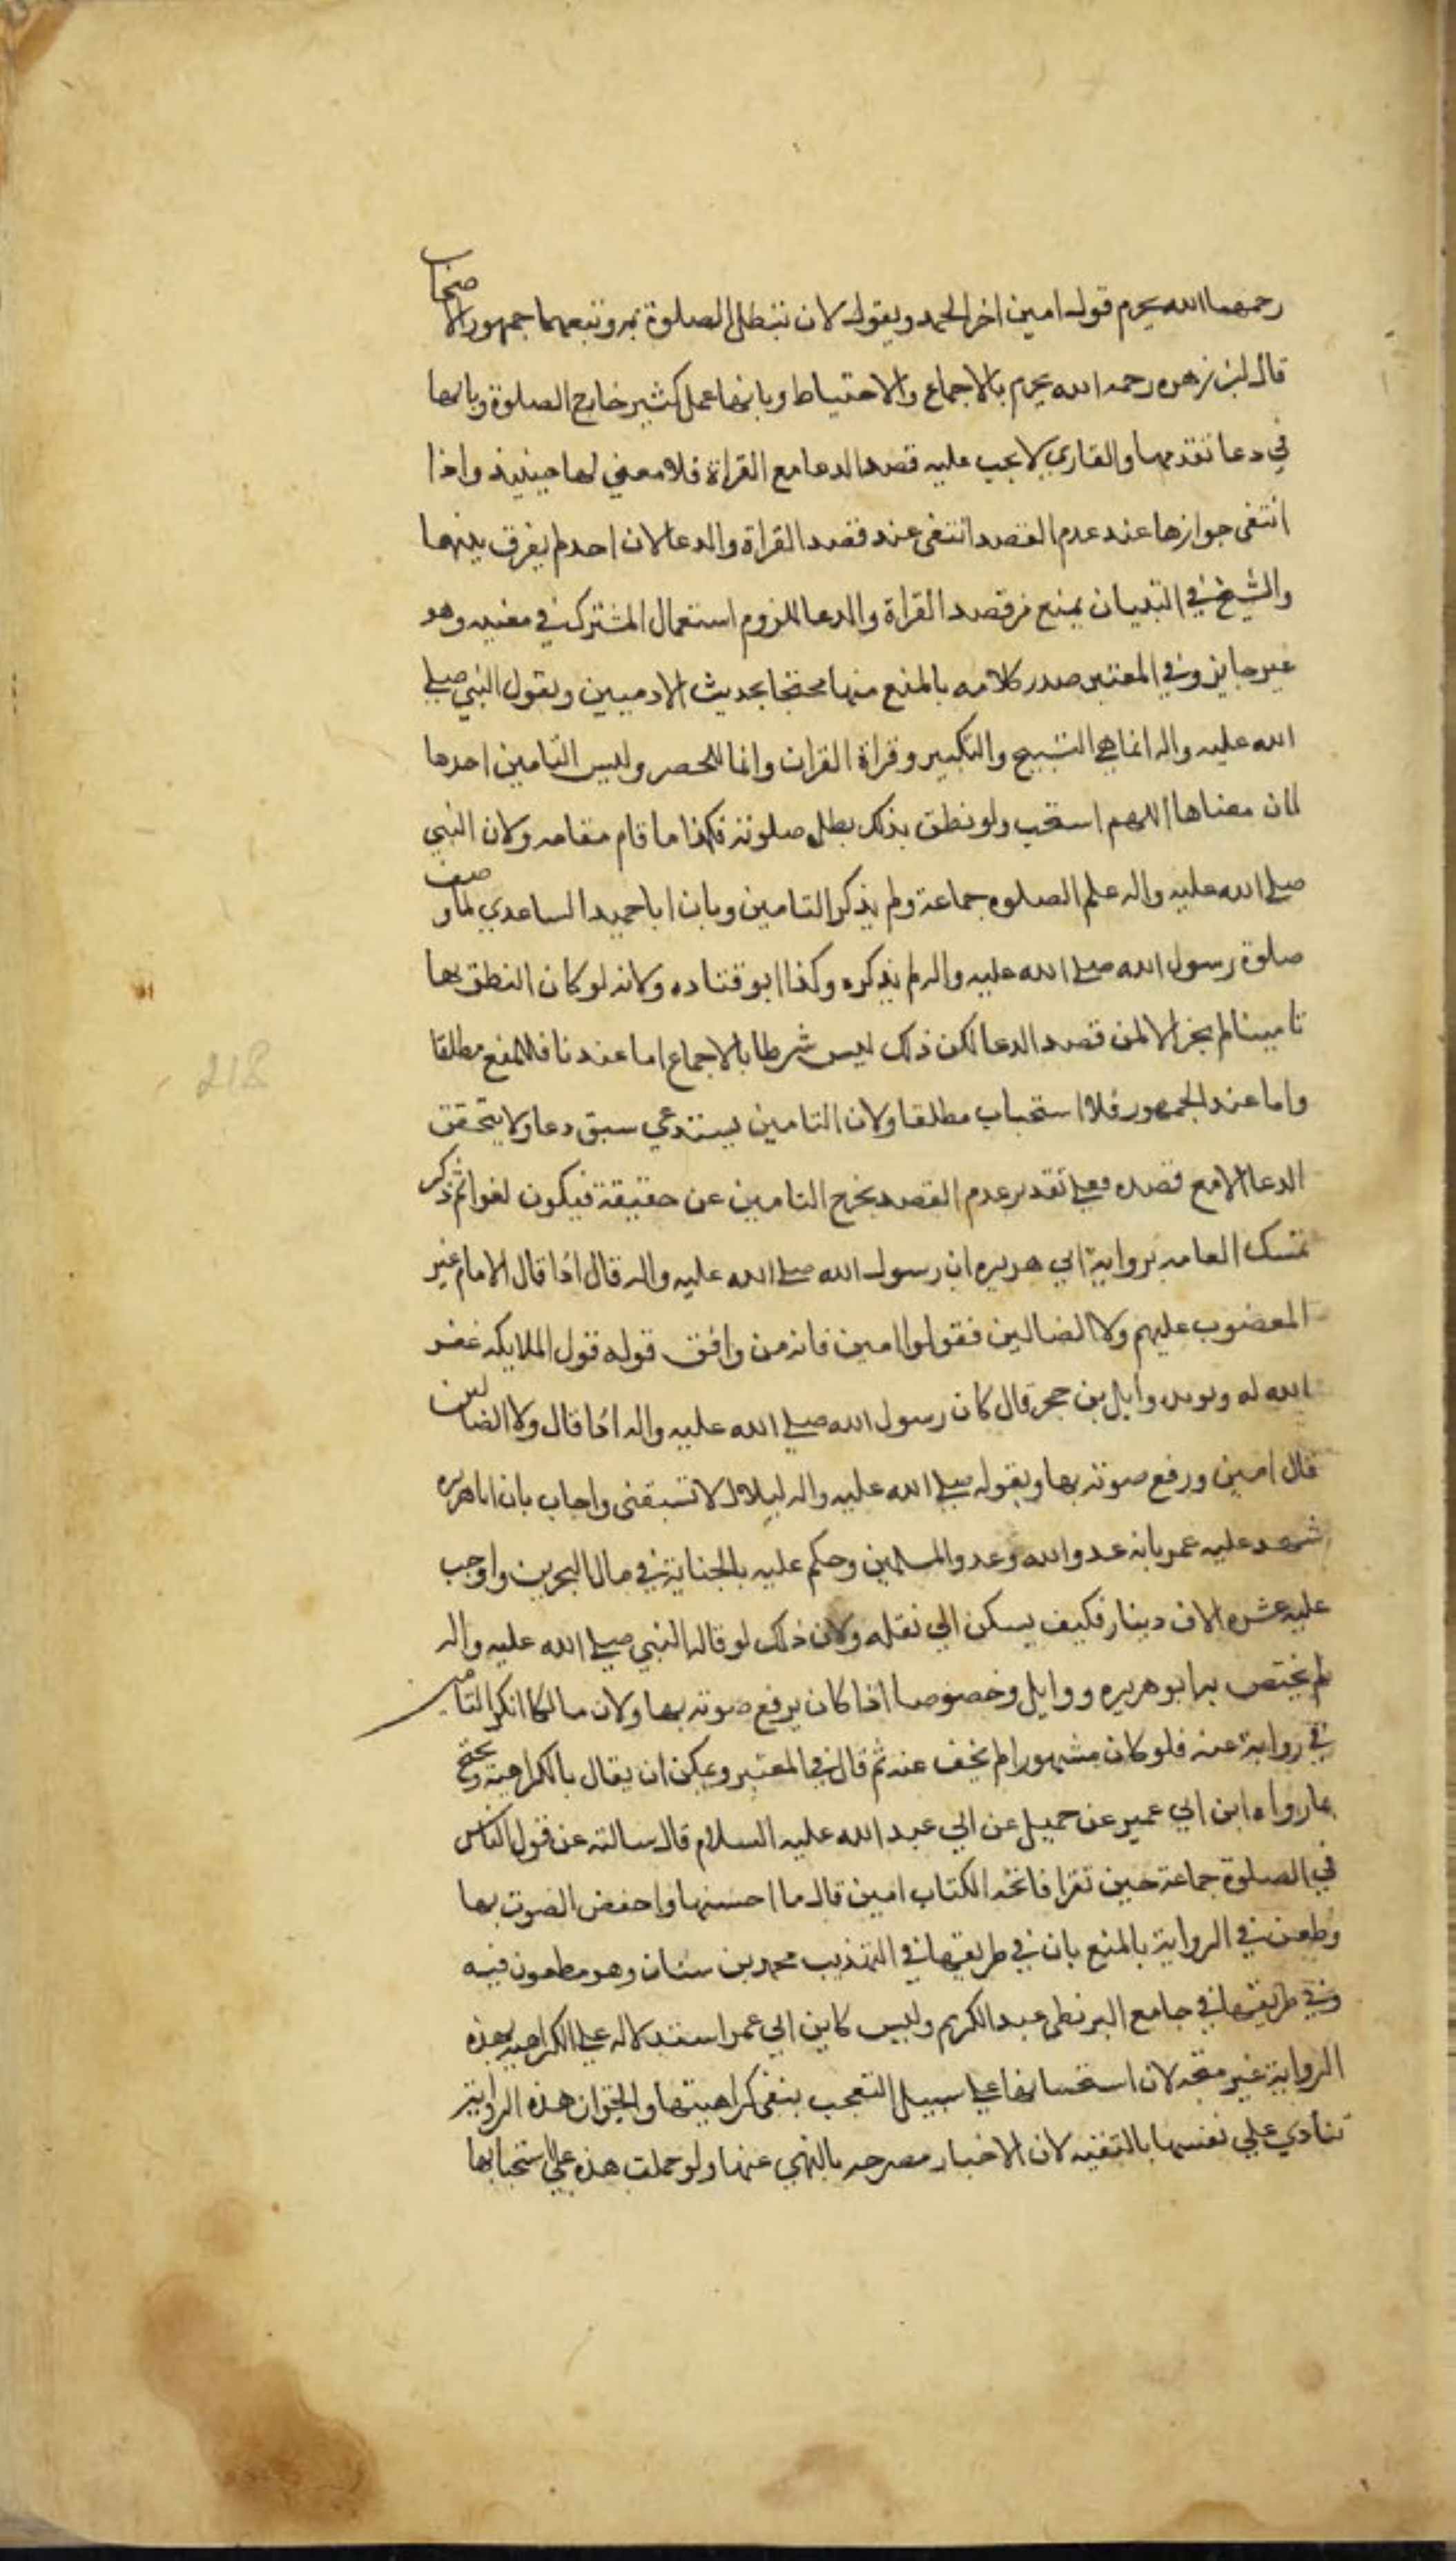 رحمهما الله يحرم قول امين اخر الحمد ويقول لان تبطل الصلوة به وتبعهما جمهور الاصحاب
قال ابن زهره رحمه الله يحرم بالاجماع والاحتياط وبانها عمل كثير خارج الصلوة وبانها
في دعا تقدمها والقاري لا يجب عليه قصد الدعا مع القراة فلا معني لها حينيذ واذا
انتفى جوازها عند عدم القصد انتفى عند قصد القراة والدعا لان احدا لم يفرق بينهما
والشيخ في التبيان يمنع من قصد القراة والدعا للزوم استعمال المشترك في معنييه وهو
غير جايز وفي المعتبر صدر كلامه بالمنع منها محتجا بحديث الادميين وبقول النبي صلى
الله عليه واله انما هي التسبيح والتكبير وقراة القران وانما للحصر وليس التامين احدها
لان معناها اللهم استجب ولو نطق بذلك بطل صلوته فكذا ما قام مقامه ولان النبي
صلى الله عليه واله علم الصلوه جماعة ولم يذكر التامين وبان ابا حميد الساعدي لما وصف
صلوة رسول الله صلى الله عليه واله لم يذكره وكذا ابو قتاده ولانه لو كان النطق بها
تامينا لم يجز الا لمن قصد الدعا لكن ذلك ليس شرطا بالاجماع اما عندنا فللمنع مطلقا
واما عند الجمهور فلا استحباب مطلقا ولان التامين يستدعي سبق دعا ولا يتحقق
الدعا الا مع قصده فعلى تقدير عدم القصد يخرج التامين عن حقيقة فيكون لغوا ثم ذكر
تمسك العامه برواية ابي هريره ان رسول الله صلى الله عليه واله قال اذا قال الامام غير
المغضوب عليهم ولا الضالين فقولوا امين فانه من وافق قوله قول الملايكه غفر
الله له وبوبد وايل بن حجر قال كان رسول الله صلى الله عليه واله اذا قال ولا الضالين
قال امين ورفع صوته بها وبقوله صلى الله عليه واله لبلال لا تسبقنى واجاب بان ابا هريره
شهد عليه عمر بانه عدو الله وعدو المسلمين وحكم عليه بالجناية في مال البحرين واوجب
عليه عشره الاف دينار فكيف يسكن الي نقله ولان ذلك لو قاله النبي صلى الله عليه واله
لم يختص به ابو هريره ووايل وخصوصا اذا كان يرفع صوته بها ولان مالكا انكر التامين
في رواية عنه فلو كان مشهورا لم يخف عنه ثم قال في المعتبر ويمكن ان يقال بالكراهية ويحتج
بما رواه ابن ابي عمير عن جميل عن ابي عبد الله عليه السلام قال سالته عن قول الناس
في الصلوة جماعة حين تقرا فاتحه الكتاب امين قال ما احسنها واخفض الصوت بها
وطعن في الرواية بالمنع بان في طريقها في التهذيب محمد بن سنان وهو مطعون فيه
وفي طريقها في جامع البزنطي عبد الكريم وليس كابن ابي عمر استدلاله على الكراهيه بهذه
الرواية غير متجه لان استحسانها على سبيل التعجب ينفى كراهيتها والحق ان هذه الرواية
تنادي على نفسها بالتقيه لان الاخبار مصرحه بالنهي عنها ولو حملت هذه على استحبابها